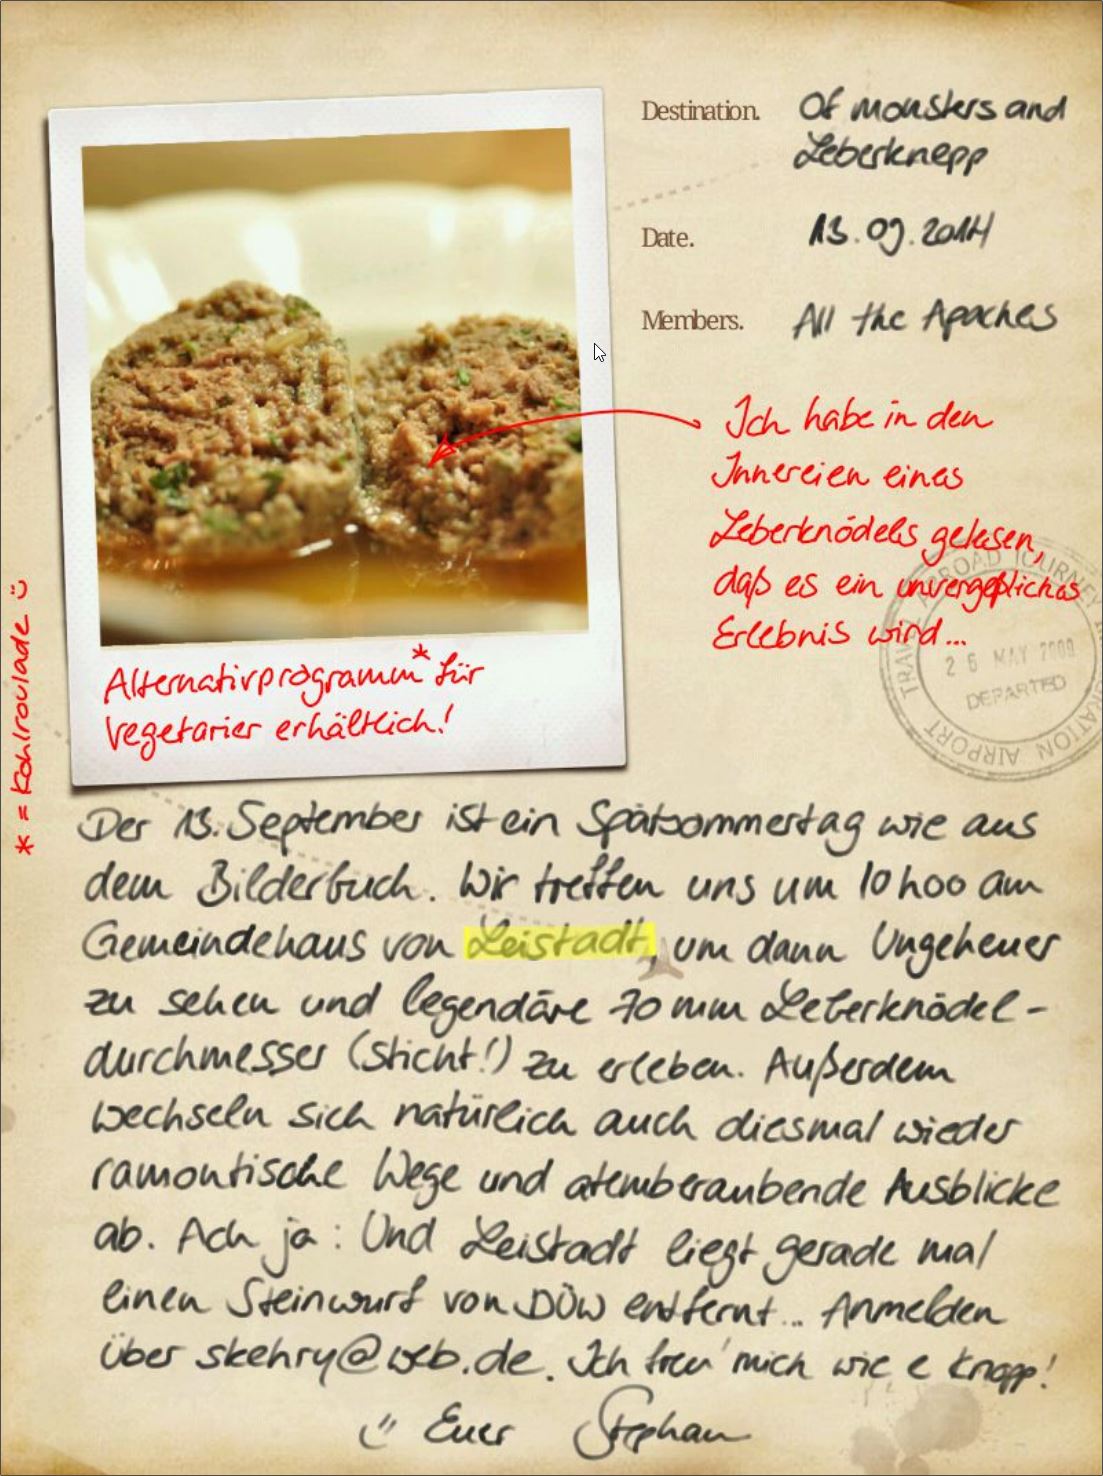 Destination. Of monsters and
Leberknepp
Date. 13.09.2014
Members. All the Apaches
Ich habe in den
Innereien eines
Leberknödels gelesen,
daß es ein unvergeßliches
Erlebnis wird...
TRAVEL ABROAD JOURNEY
26 MAY 2009
DEPARTED
AIRPORT
Alternativprogramm* für
Vegetarier erhältlich!
* = Kohlroulade ü
Der 13. September ist ein Spätsommertag wie aus
dem Bilderbuch. Wir treffen uns um 10h00 am
Gemeindehaus von Leistadt, um dann Ungeheuer
zu sehen und legendäre 70 mm Leberknödel-
durchmesser (sticht!) zu erleben. Außerdem
wechseln sich natürlich auch diesmal wieder
ramontische Wege und atemberaubende Ausblicke
ab. Ach ja: Und Leistadt liegt gerade mal
einen Steinwurf von DÜW entfernt... Anmelden
über skehry@web.de. Ich freu' mich wie e Knopp!
Euer Stephan